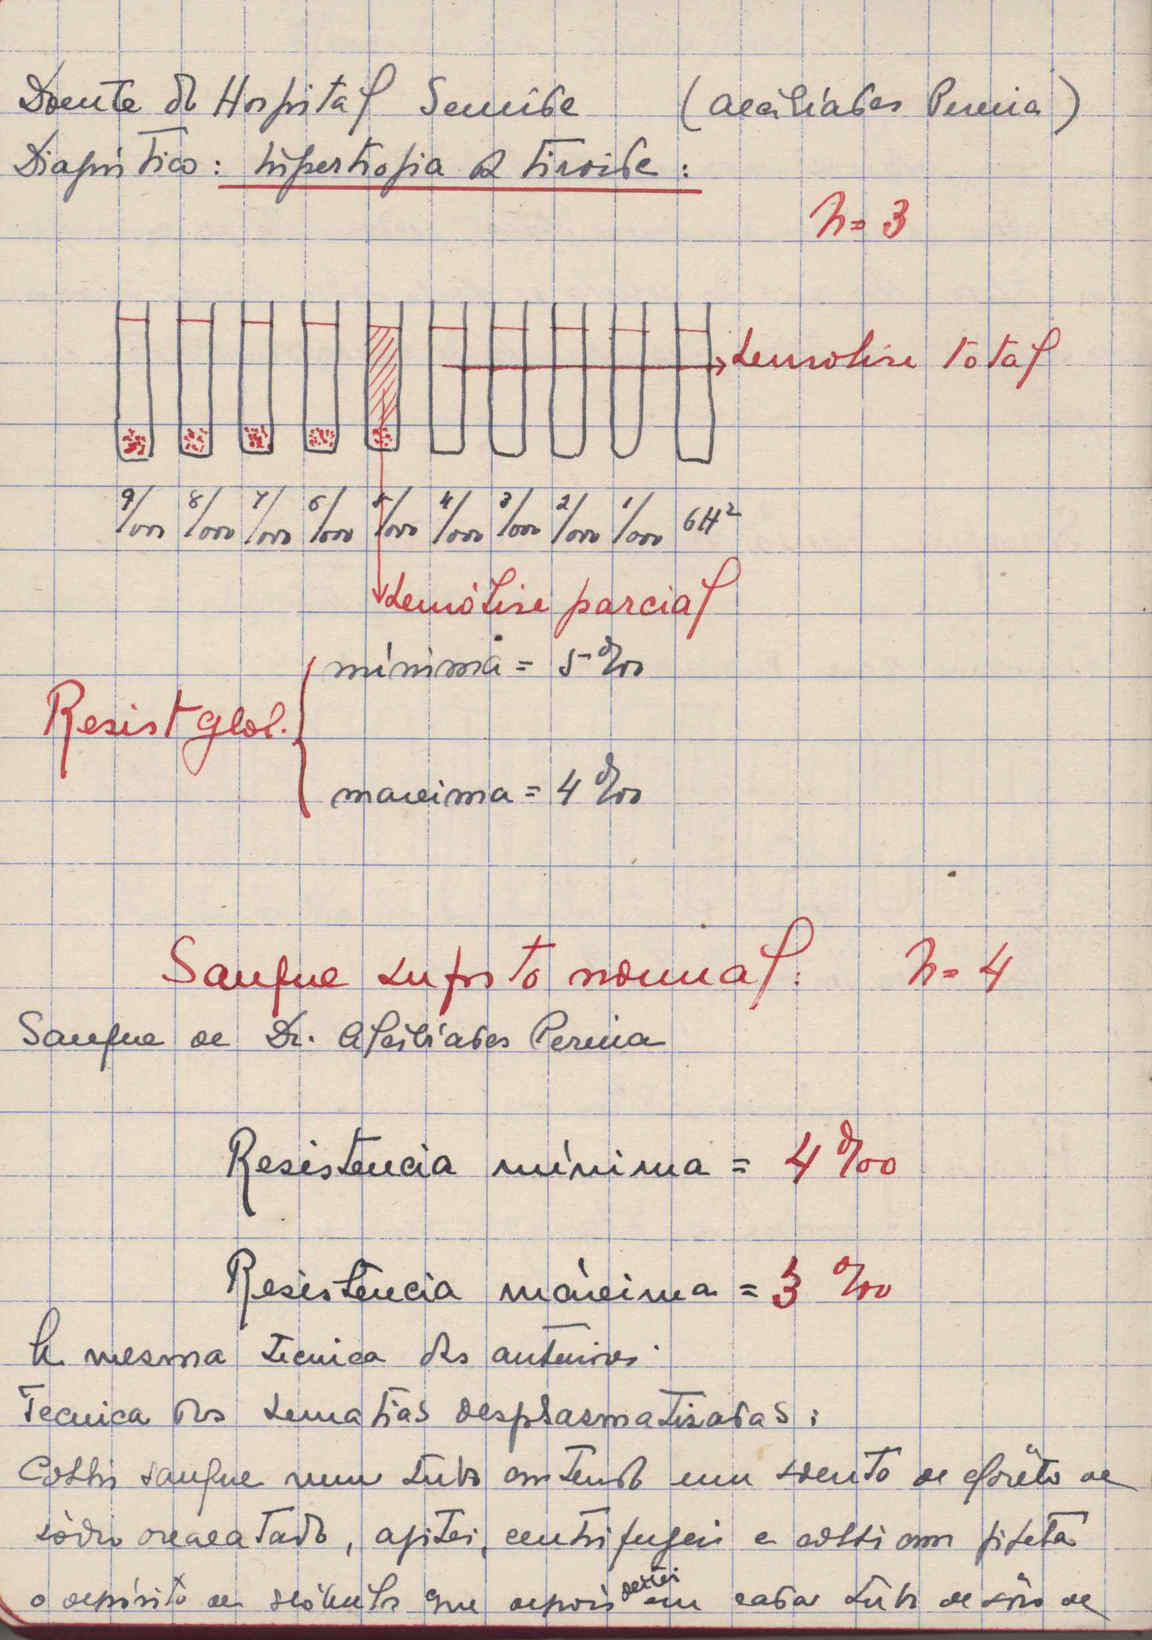 Doente do Hospital Semide (Alcibíades Pereira)
Diagnóstico: hipertrofia da tiroide:
n= 3
hemolise total
9/000 8/000 7/000 6/000 5/000 4/000 3/000 2/000 1/000 6H²
hemólise parcial
mínima = 5 %00
Resist glob.
maxima = 4 %00
Sangue suposto normal: n= 4
Sangue de Dr. Alcibíades Pereira
Resistencia mínima = 4 %00
Resistência máxima = 3 %00
A mesma tecnica dos anteriores.
Tecnica dos hematias desplasmatisadas:
Colhi sangue num tubo contendo um soluto de cloreto de
sódio oxalatado, agitei, centrifugei e colhi com pipeta
o depósito de glóbulos que depois deitei em cada tubo de sôro de